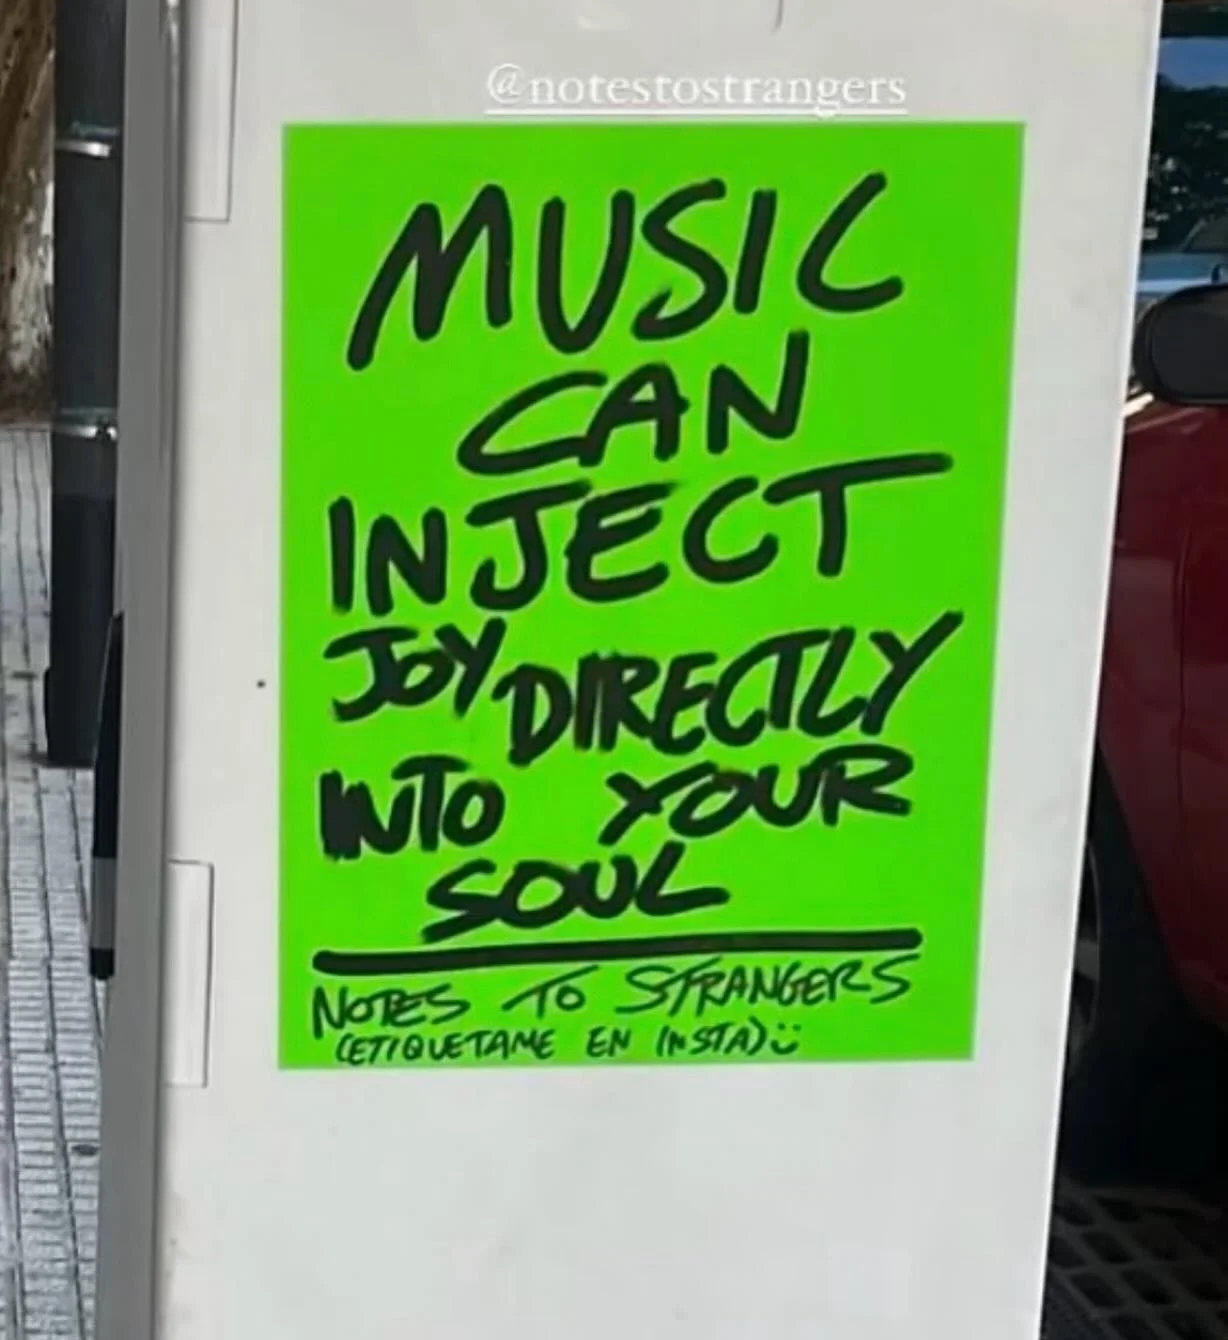 @notestostrangers
MUSIC
CAN
INJECT
JOY DIRECTLY
INTO YOUR
SOUL
NOTES TO STRANGERS
(ETIQUETAME EN INSTA) :)